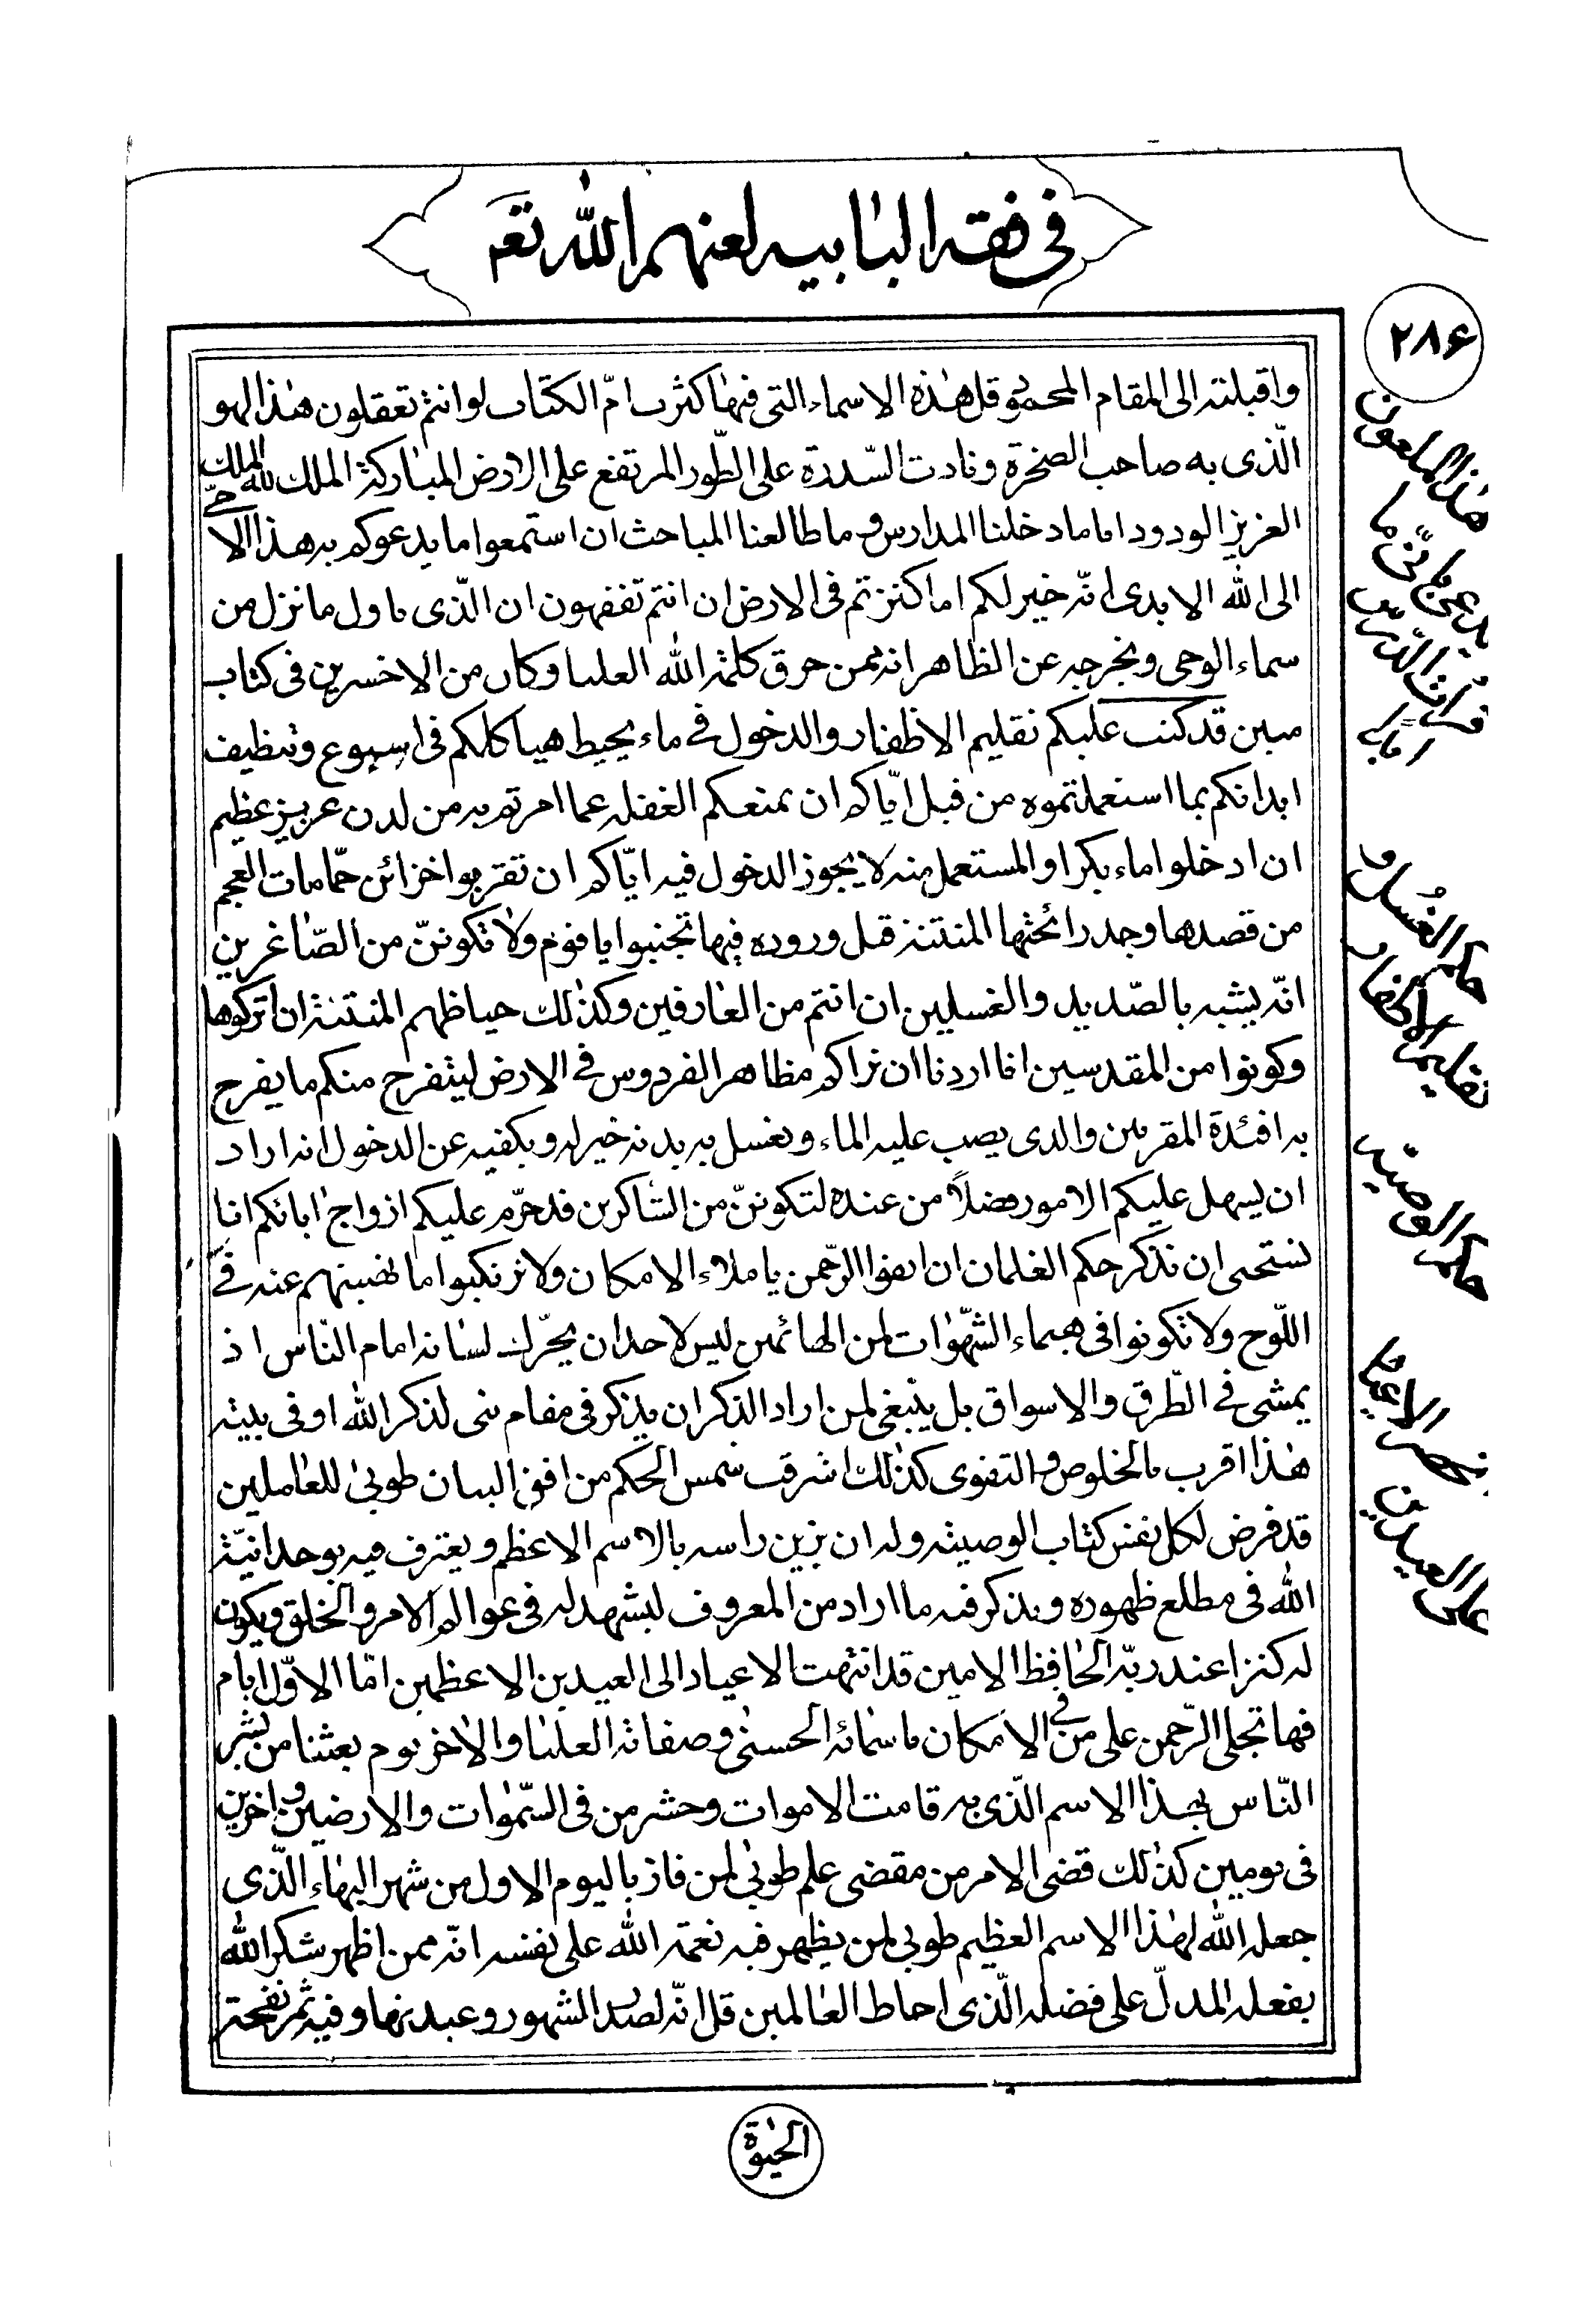 فى فقه البابيه لعنهم الله تعه
۲۸۶
واقبلته الى المقام المحمود قل هذه الاسماء التى فيها كثرت امّ الكتاب لو انتم تعقلون هذا لهو
الّذى به صاحب الصخرة ونادت السّدرة على الطّور المرتفع على الارض المباركة الملك لله الملك
العزيز الودود انا ما دخلنا المدارس وما طالعنا المباحث ان استمعوا ما يدعوكم به هذا الامّى
الى الله الابدى انّه خير لكم اما كنزتم فى الارض ان انتم تفقهون ان الّذى ياول ما نزل من
سماء الوحى ويخرجه عن الظاهر انه ممن حرق كلمة الله العليا وكان من الاخسرين فى كتاب
مبين قد كتب عليكم تقليم الاظفار والدخول فى ماء يحيط هياكلكم فى اسبوع وتنظيف
ابدانكم بما استعملتموه من قبل ايّاكم ان يمنعكم الغفله عما امرتم به من لدن عزيز عظيم
ان ادخلوا ماء بكرا والمستعمل منه لا يجوز الدخول فيه ايّاكم ان تقربوا خزائن حمّامات العجم
من قصدها وجد رائحتها المنتنة قبل وروده فيها تجنبوا يا قوم ولا تكوننّ من الصّاغرين
انّه يشبه بالصّديد والغسلين ان انتم من العارفين وكذلك حياظهم المنتنة ان اتركوها
وكونوا من المقدسين انا اردنا ان نراكم مظاهر الفردوس فى الارض ليتفرح منكم ما يفرح
به افئدة المقربين والذى يصب عليه الماء ويغسل به بدنه خير له ويكفيه عن الدخول انه اراد
ان يسهل عليكم الامور فضلاً من عنده لتكوننّ من الشاكرين قد حرّم عليكم ازواج ابائكم انا
نستحيى ان نذكر حكم الغلمان ان اتقوا الرّحمن يا ملاء الامكان ولا ترتكبوا ما نهيتم عنه فى
اللّوح ولا تكونوا فى هيماء الشّهوات لمن الهائمين ليس لاحد ان يحرّك لسانه امام النّاس اذ
يمشى فى الطّرق والاسواق بل ينبغى لمن اراد الذكر ان يذكر فى مقام بنى لذكر الله او فى بيته
هذا اقرب بالخلوص والتقوى كذلك اشرقت شمس الحكم من افق البيان طوبى للعاملين
قد فرض لكل نفس كتاب الوصيته وله ان يزين راسه بالاسم الاعظم ويعترف فيه بوحدانيّة
الله فى مطلع ظهوره ويذكر فيه ما اراد من المعروف ليشهد له فى عوالم الامر والخلق ويكون
له كنزا عند ربّه الحافظ الامين قد انتهت الاعياد الى العيدين الاعظمين امّا الاوّل ايام
فيها تجلى الرّحمن على من فى الامكان باسمائه الحسنى وصفاته العليا والاخر يوم بعثنا من بشر
النّاس بهذا الاسم الّذى به قامت الاموات وحشر من فى السّموات والارضين واخرين
فى يومين كذلك قضى الامر من مقضى علم طوبى لمن فاز باليوم الاول من شهر البهاء الّذى
جعله الله لهذا الاسم العظيم طوبى لمن يظهر فيه نعمة الله على نفسه انّه ممن اظهر شكر الله
بفعله المدلّ على فضله الّذى احاط العالمين قل انّه لصدر الشهور و فيه تمر نفحة
الحيوة
هذا الملعون
ما
حكم الغسل و
تقليم الاظفار
حكم الوصية
الاعياد
على العيدين